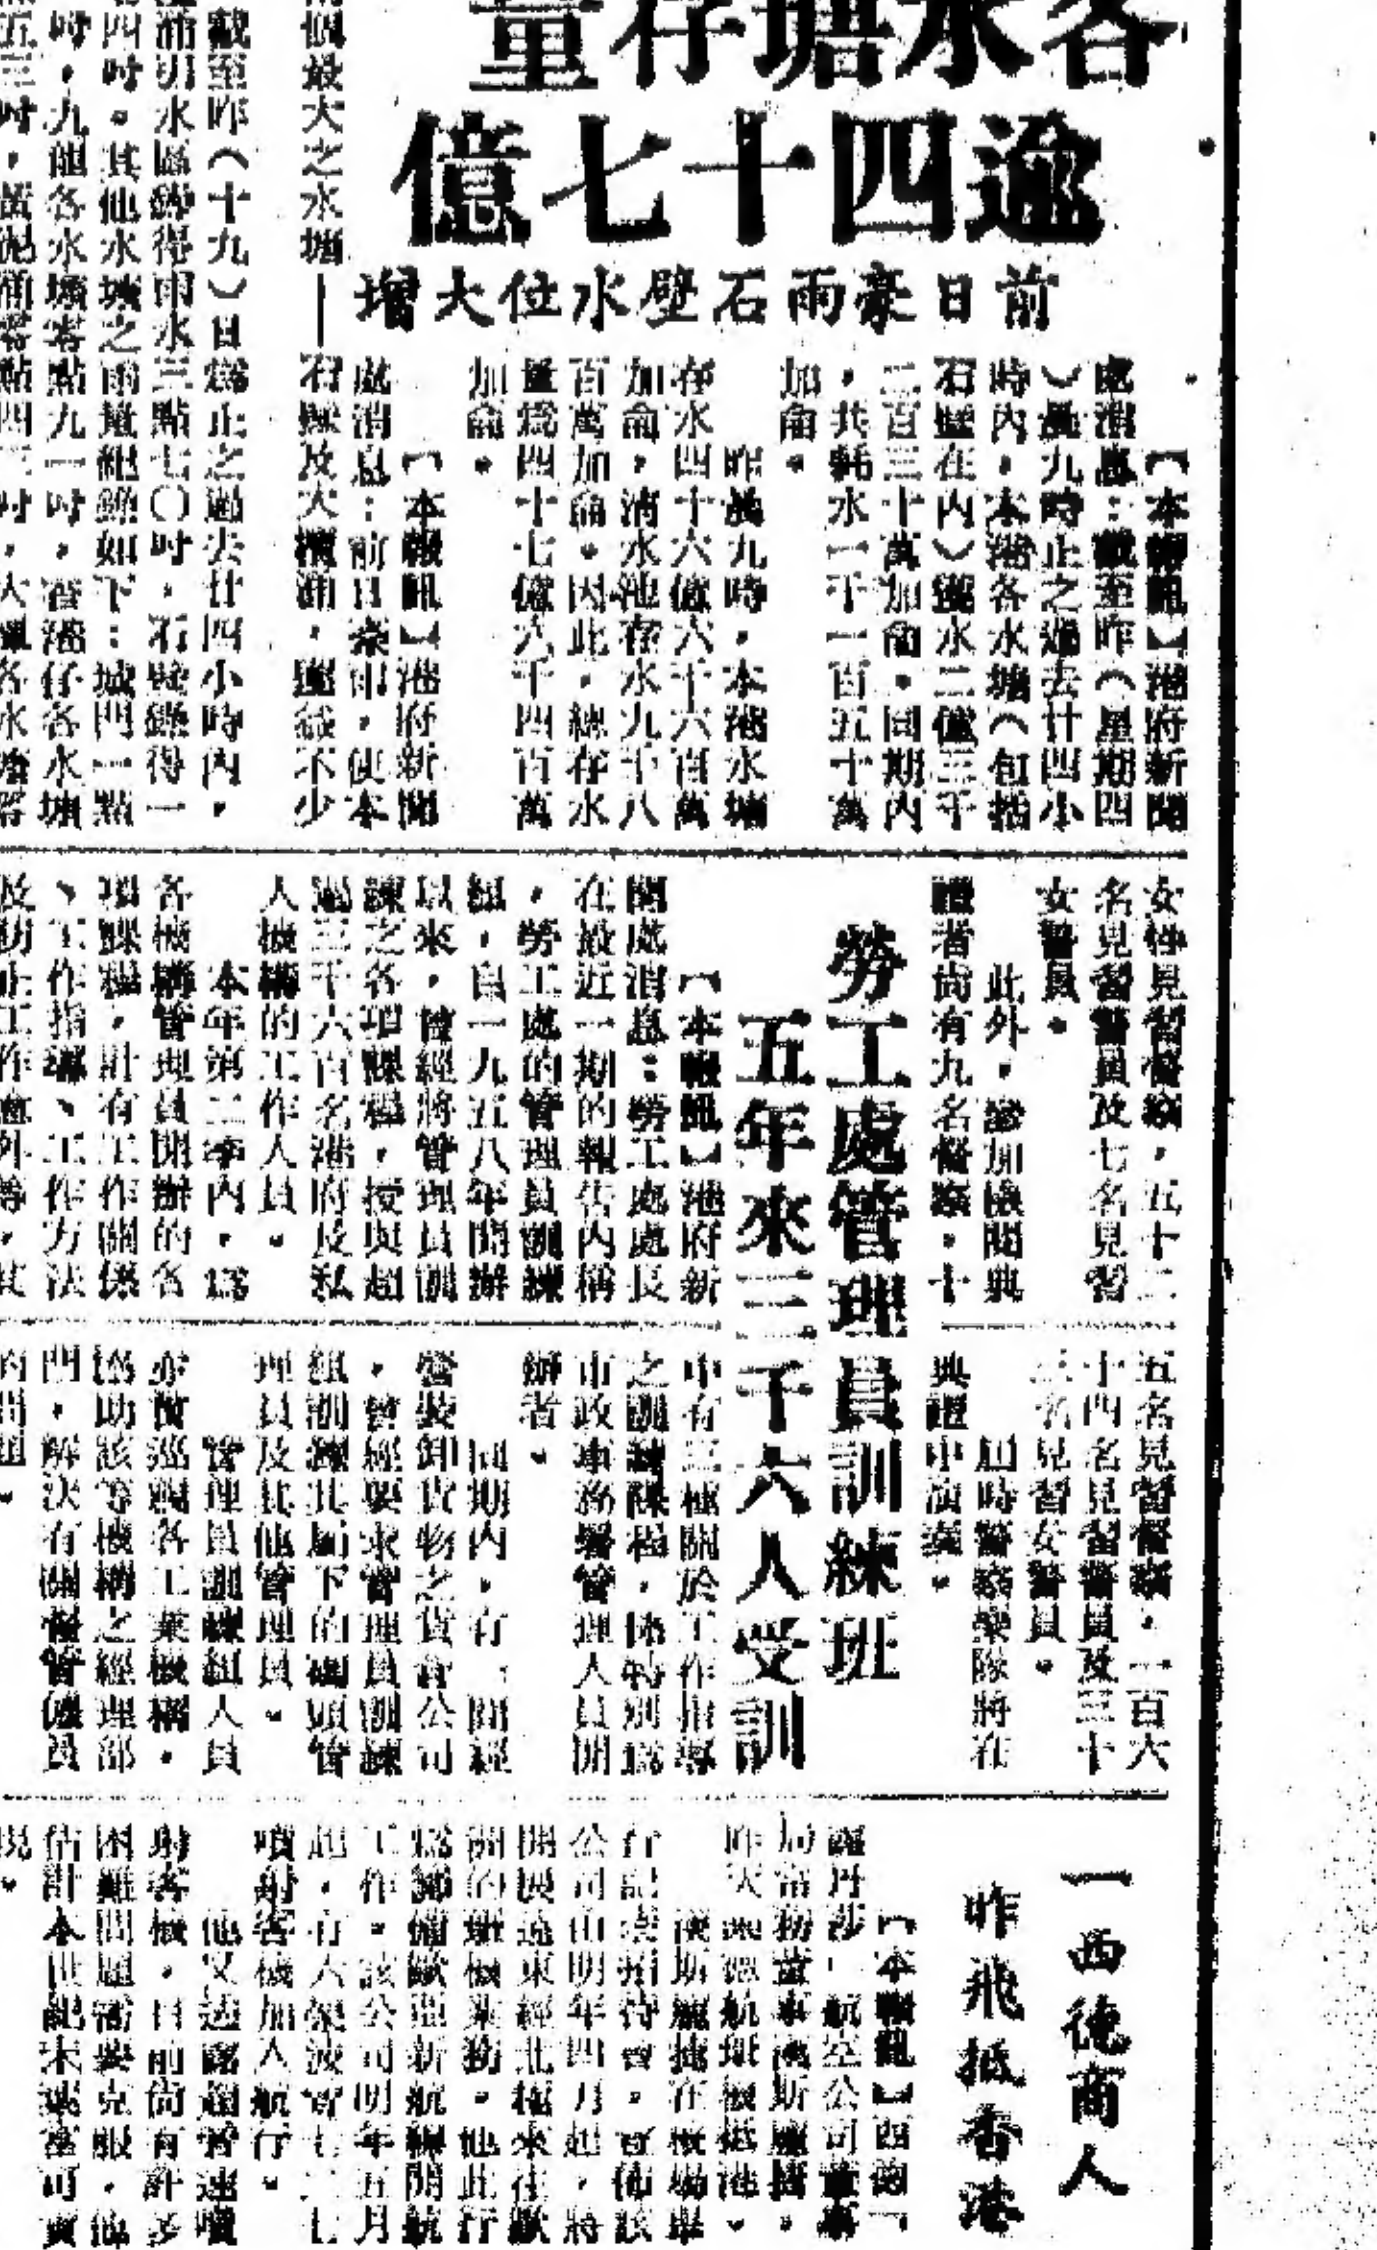 各水塘存量
逾四十七億
前日豪雨石壁水位大增
【本報訊】港府新聞
處消息：截至昨（星期四
）晨九時止之過去廿四小
時內，本港各水塘（包括
石壁在內）獲水二億三千
二百三十萬加侖。同期內
，共耗水一千一百五十萬
加侖。
昨晨九時，本港水塘
存水四十六億六千六百萬
加侖，清水池存水九千八
百萬加侖。因此，總存水
量為四十七億六千四百萬
加侖。
【本報訊】港府新聞
處消息：前日豪雨，使本
個最大之水塘—石壁及大欖涌，獲益不少
截至昨（十九）日為止之過去廿四小時內，
涌引水區錄得雨水三點七〇吋，石壁錄得一
四吋。其他水塘之雨量紀錄如下：城門一點
吋，九龍各水塘零點九一吋，香港仔各水塘
五三吋，黃泥涌零點四三吋，大潭各水塘零
女性見習督察，五十二
名見習警員及七名見習
女警員。
此外，參加檢閱典
禮者尚有九名督察，十
五名見習督察，一百六
十四名見習警員及三十
三名見習女警員。
屆時警察樂隊將在
典禮中演奏。
勞工處管理員訓練班
五年來三千六人受訓
【本報訊】港府新
聞處消息：勞工處處長
在最近一期的報告內稱
，勞工處的管理員訓練
組，自一九五八年開辦
以來，曾經將管理員訓
練之各項課程，授與超
過三千六百名港府及私
人機構的工作人員。
本年第二季內，為
各機構管理員開辦的各
項課程，計有工作關係
、工作指導、工作方法
及防止工作意外等，其
中有三種關於工作指導
之訓練課程，係特別為
市政事務署管理人員開
辦者。
同期內，有一間經
營裝卸貨物之貨倉公司
，曾經要求管理員訓練
組訓練其屬下的碼頭管
理員及其他管理員。
管理員訓練組人員
亦曾巡視各工業機構，
協助該等機構之經理部
門，解決有關督管僱員
的問題。
一西德商人
昨飛抵香港
【本報訊】西德「
露丹莎」航空公司董事
局常務董事
昨天乘德航班機抵港。
在機場舉
行記者招待會，宣佈該
公司由明年四月起，將
開展遠東經北極來往歐
洲的班機業務。他此行
為籌備歐亞新航線開航
工作。該公司明年五月
起，有六架波音七二七
噴射客機加入航行。
他又透露超音速噴
射客機，目前尚有許多
困難問題需要克服，他
估計本世紀末或當可實
現。